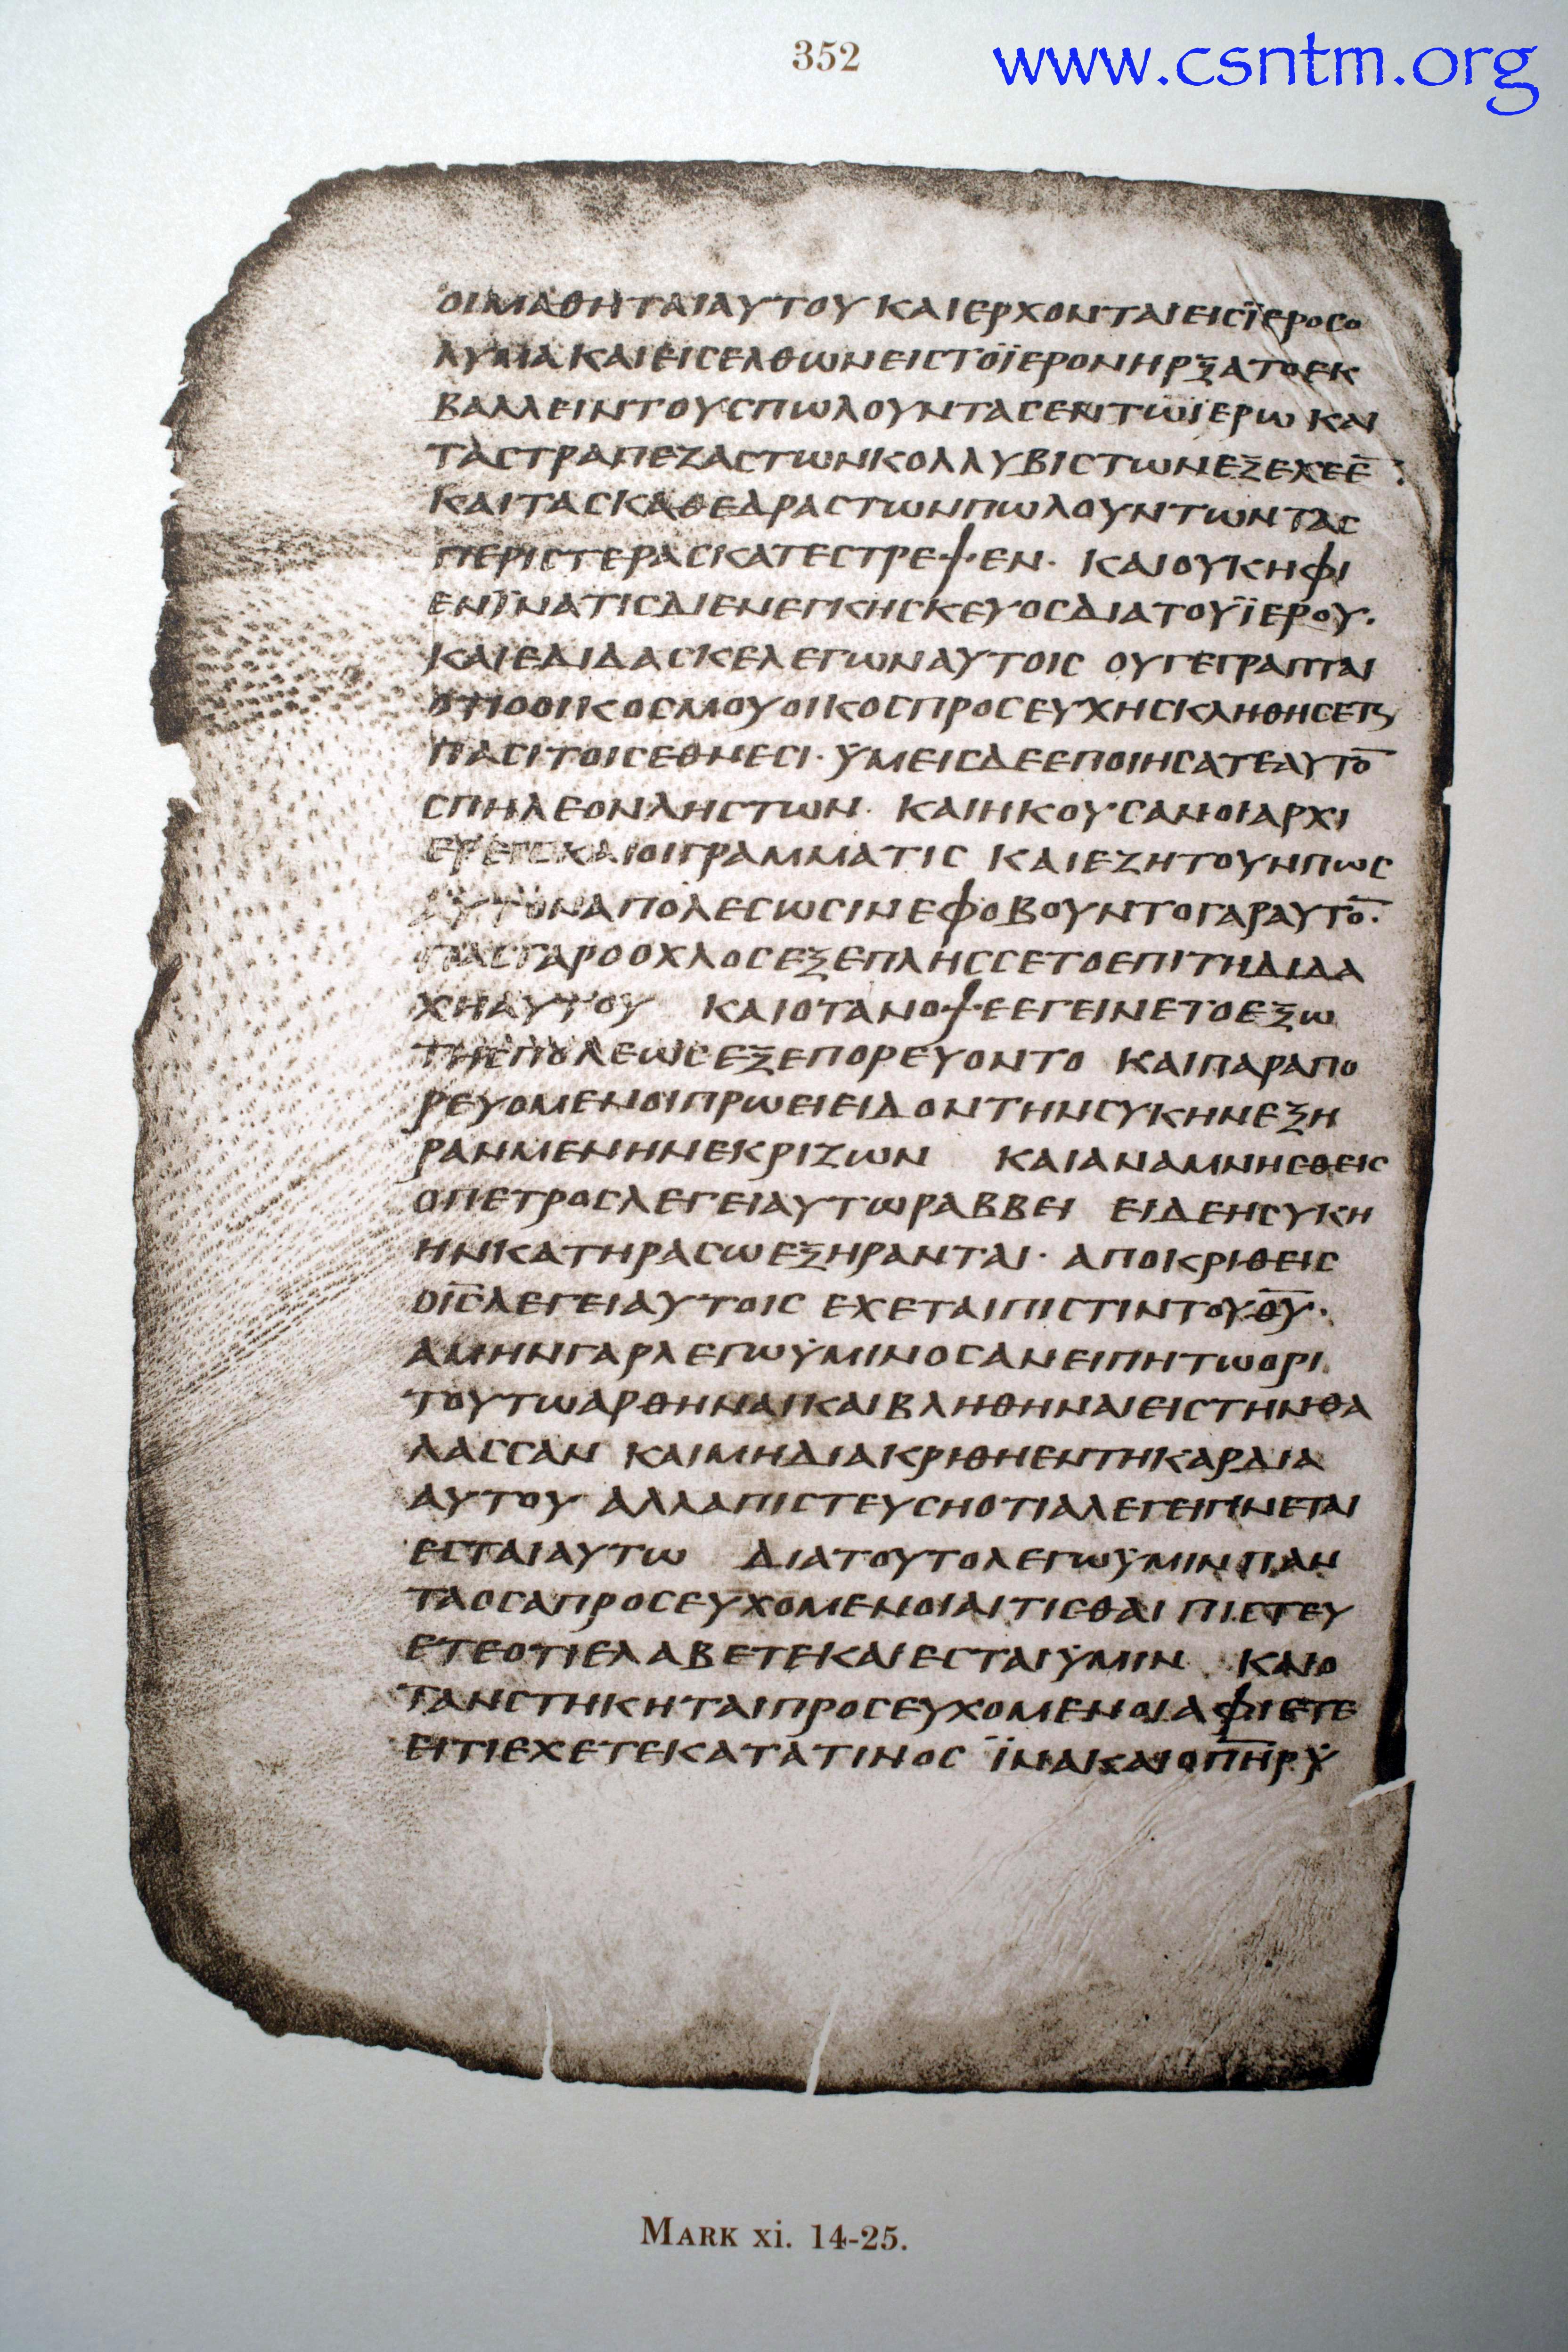 352
www.csntm.org
ΟΙΜΑΘΗΤΑΙΑΥΤΟΥ ΚΑΙΕΡΧΟΝΤΑΙΕΙCΪΕΡΟCΟ
ΛΥΜΑΚΑΙΕΙCΕΛΘΩΝΕΙCΤΟΪΕΡΟΝΗΡΞΑΤΟΕΚ
ΒΑΛΛΕΙΝΤΟΥCΠΩΛΟΥΝΤΑCΕΝΤΩΪΕΡΩ ΚΑΙ
ΤΑCΤΡΑΠΕΖΑCΤΩΝΚΟΛΛΥΒΙCΤΩΝΕΞΕΧΕΕ̅·
ΚΑΙΤΑCΚΑΘΕΔΡΑCΤΩΝΠΩΛΟΥΝΤΩΝΤΑC
ΠΕΡΙCΤΕΡΑCΚΑΤΕCΤΡΕΨΕΝ· ΚΑΙΟΥΚΗΦΙ
ΕΝΪΝΑΤΙCΔΙΕΝΕΓΚΗCΚΕΥΟCΔΙΑΤΟΥΪΕΡΟΥ·
ΚΑΙΕΔΙΔΑCΚΕΛΕΓΩΝΑΥΤΟΙC ΟΥΓΕΓΡΑΠΤΑΙ
ΟΤΙΟΟΙΚΟCΜΟΥΟΙΚΟCΠΡΟCΕΥΧΗCΚΛΗΘΗCΕΤϗ
ΠΑCΙΤΟΙCΕΘΝΕCΙ· ΫΜΕΙCΔΕΕΠΟΙΗCΑΤΕΑΥΤΟ̅
CΠΗΛΕΟΝΛΗCΤΩΝ· ΚΑΙΗΚΟΥCΑΝΟΙΑΡΧΙ
ΕΡΕΙCΚΑΙΟΙΓΡΑΜΜΑΤΙC ΚΑΙΕΖΗΤΟΥΝΠΩC
ΑΥΤΟΝΑΠΟΛΕCΩCΙΝΕΦΟΒΟΥΝΤΟΓΑΡΑΥΤΟ̅·
ΠΑCΓΑΡΟΟΧΛΟCΕΞΕΠΛΗCCΕΤΟΕΠΙΤΗΔΙΔΑ
ΧΗΑΥΤΟΥ ΚΑΙΟΤΑΝΟΨΕΕΓΕΙΝΕΤΟΕΞΩ
ΤΗCΠΟΛΕΩCΕΞΕΠΟΡΕΥΟΝΤΟ ΚΑΙΠΑΡΑΠΟ
ΡΕΥΟΜΕΝΟΙΠΡΩΕΙΕΙΔΟΝΤΗΝCΥΚΗΝΕΞΗ
ΡΑΜΜΕΝΗΝΕΚΡΙΖΩΝ ΚΑΙΑΝΑΜΝΗCΘΕΙC
ΟΠΕΤΡΟCΛΕΓΕΙΑΥΤΩΡΑΒΒΕΙ ΕΙΔΕΗCΥΚΗ
ΗΝΚΑΤΗΡΑCΩΕΞΗΡΑΝΤΑΙ· ΑΠΟΚΡΙΘΕΙC
ΟΙ̅C̅ΛΕΓΕΙΑΥΤΟΙC ΕΧΕΤΑΙΠΙCΤΙΝΤΟΥΘ̅Υ̅·
ΑΜΗΝΓΑΡΛΕΓΩΫΜΙΝΟCΑΝΕΙΠΗΤΩΟΡΙ
ΤΟΥΤΩΑΡΘΗΝΑΙΚΑΙΒΛΗΘΗΝΑΙΕΙCΤΗΝΘΑ
ΛΑCCΑΝ ΚΑΙΜΗΔΙΑΚΡΙΘΗΕΝΤΗΚΑΡΔΙΑ
ΑΥΤΟΥ ΑΛΛΑΠΙCΤΕΥCΗΟΤΙΑΛΕΓΕΙΓΙΝΕΤΑΙ
ΕCΤΑΙΑΥΤΩ ΔΙΑΤΟΥΤΟΛΕΓΩΫΜΙΝΠΑΝ
ΤΑΟCΑΠΡΟCΕΥΧΟΜΕΝΟΙΑΙΤΙCΘΑΙΠΙCΤΕΥ
ΕΤΕΟΤΙΕΛΑΒΕΤΕΚΑΙΕCΤΑΙΫΜΙΝ ΚΑΙΟ
ΤΑΝCΤΗΚΗΤΑΙΠΡΟCΕΥΧΟΜΕΝΟΙΑΦΙΕΤΕ
ΕΙΤΙΕΧΕΤΕΚΑΤΑΤΙΝΟC ΪΝΑΚΑΙΟΠ̅Η̅Ρ̅Ϋ
MARK xi. 14-25.